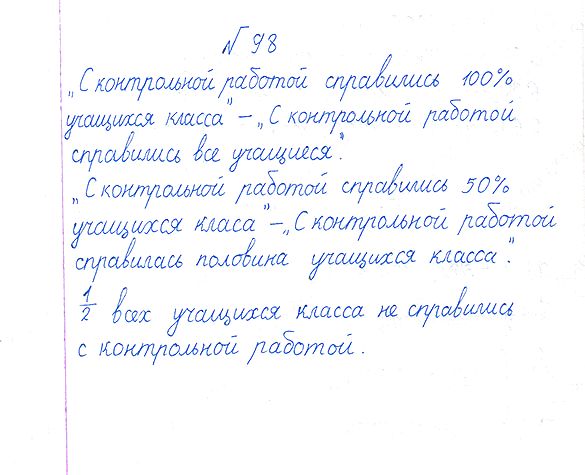 № 98
„С контрольной работой справились 100%
учащихся класса" – „С контрольной работой
справились все учащиеся".
„С контрольной работой справились 50%
учащихся класа" – „С контрольной работой
справилась половина учащихся класса".
1/2 всех учащихся класса не справились
с контрольной работой.